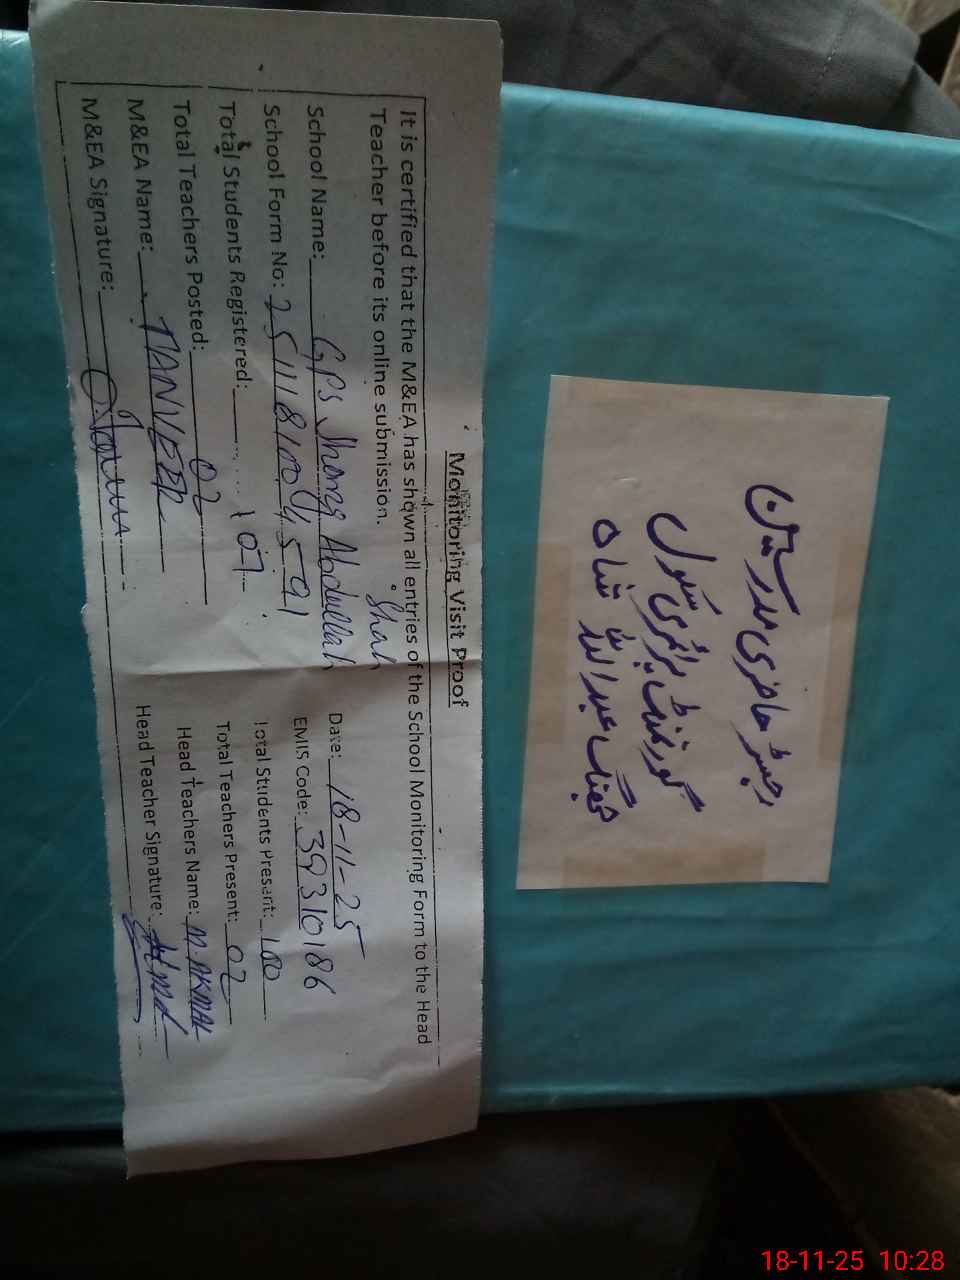 Monitoring Visit Proof
It is certified that the M&EA has shown all entries of the School Monitoring Form to the Head
Teacher before its online submission.
School Name: GPS Jhang Abdullah Shah
Date: 18-11-25
School Form No: 2511181004591
EMIS Code: 39310186
Total Students Registered: 107
Total Students Present: 100
Total Teachers Posted: 02
Total Teachers Present: 02
M&EA Name: TANVEER
Head Teachers Name: M. AKMAL
M&EA Signature:
Head Teacher Signature:
رجسٹر حاضری مدرسین
گورنمنٹ پرائمری سکول
جھنگ عبداللہ شاہ
18-11-25 10:28